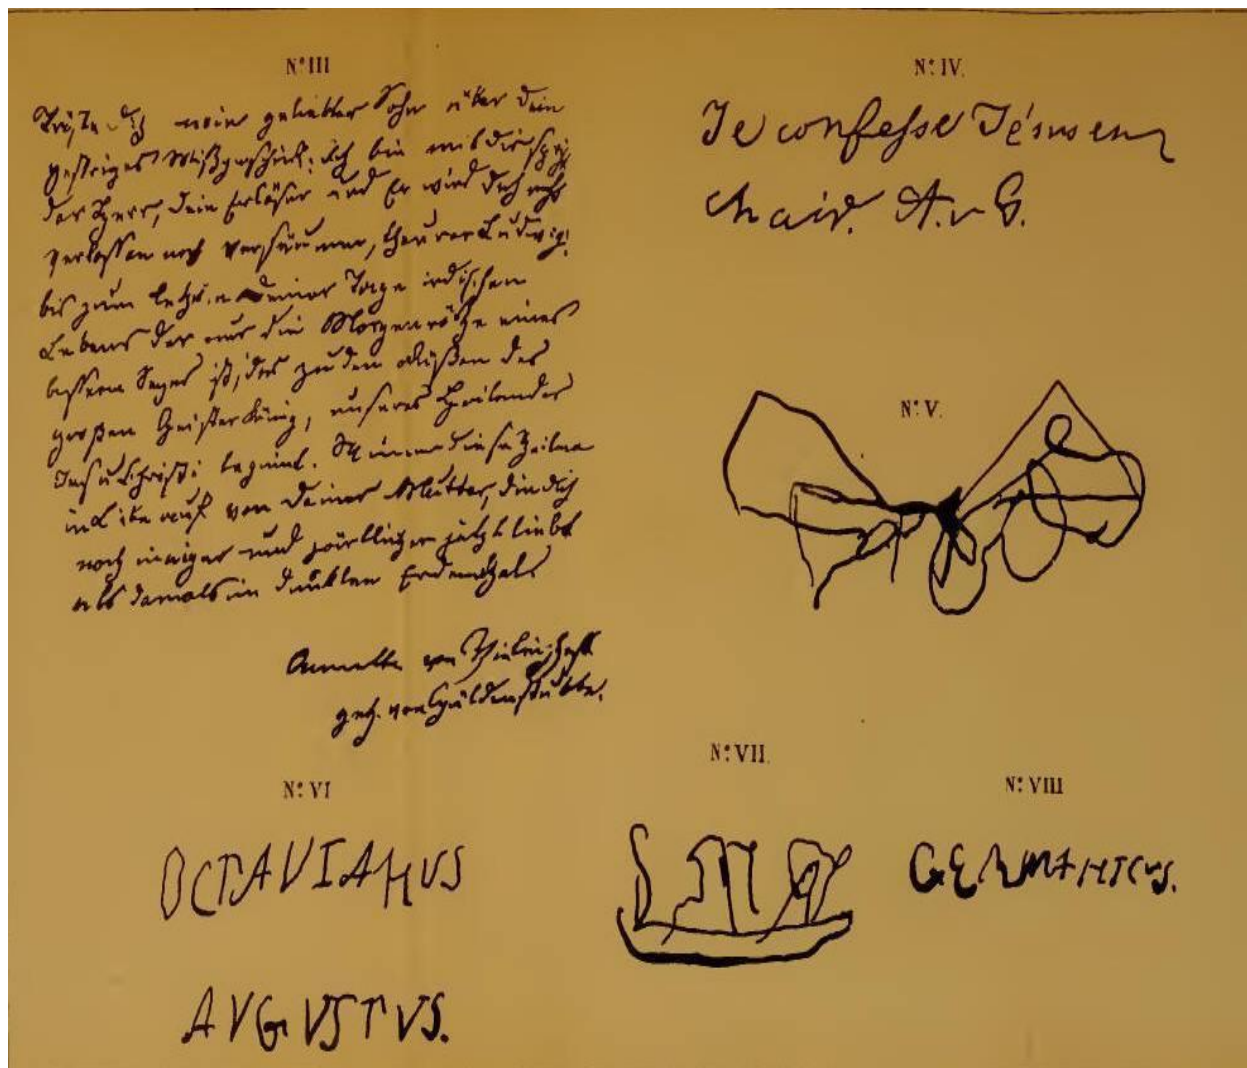 Nº III
Tröste dich mein geliebter Sohn über dein
gestriges Mißgeschick: Ich bin mit dir spricht
der Herr, dein Erlöser und Er wird dich nicht
verlassen noch versäumen, theurer Ludwig,
bis zum letzten deiner Tage irdischen
Lebens der nur die Morgenröthe eines
bessern Seyns ist, das zu den Füßen des
großen Geisterkönig, unseres Heilandes
Jesu Christi beginnt. Nimm diese Zeilen
in Liebe auf von deiner Mutter, die dich
noch inniger und zärtlicher jetzt liebt
als damals im dunklen Erdenthale
von
geb. von Güldenstubbe.
Nº IV.
Je confesse Jésus en
chair. A. v G.
Nº V.
Nº VI
OCTAVIANUS
AVGVSTVS.
Nº VII.
Nº VIII
GERMANICUS.